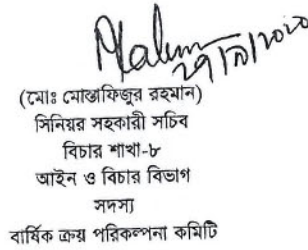 (মোঃ মোস্তাফিজুর রহমান)
সিনিয়র সহকারী সচিব
বিচার শাখা-৮
আইন ও বিচার বিভাগ
সদস্য
বার্ষিক ক্রয় পরিকল্পনা কমিটি